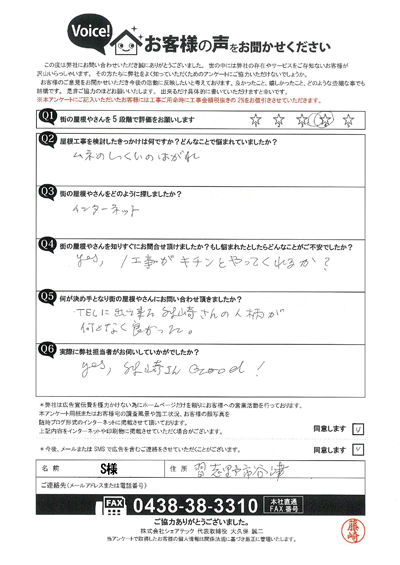 Voice!
お客様の声をお聞かせください
この度は弊社にお問い合わせいただき誠にありがとうございました。世の中には弊社の存在やサービスをご存知ないお客様が
沢山いらっしゃいます。その方たちにも弊社をよく知っていただくためのアンケートにご協力いただけないでしょうか。
お客様のご意見をお聞かせいただき今後の活動に反映したいと考えております。良かったこと、嬉しかったこと、どのような些細な事でも
結構です。是非ご協力のほどお願いいたします。出来るだけ具体的に書いていただけますと幸いです。
※本アンケートにご記入いただいたお客様には工事ご用命時に工事金額税抜きの2%をお値引きさせていただきます。
Q1 街の屋根やさんを5段階で評価をお願いします ☆ ☆ ☆ ☆ ☆
Q2 屋根工事を検討したきっかけは何ですか?どんなことで悩まれていましたか?
ムネのしっくいのはがれ
Q3 街の屋根やさんをどのように探しましたか?
インターネット
Q4 街の屋根やさんを知りすぐにお問合せ頂けましたか?もし悩まれたとしたらどんなことがご不安でしたか?
yes, / 工事がキチンとやってくれるか?
Q5 何が決め手となり街の屋根やさんにお問い合わせ頂きましたか?
TELに出て来る 崎さんの人柄が
何となく良かった。
Q6 実際に弊社担当者がお伺いしていかがでしたか?
yes, 崎さん Good!
※弊社は広告宣伝費を極力かけない為にホームページだけを頼りにお客様への営業活動を行っております。
本アンケート用紙またはお客様宅の調査風景や施工状況、お客様の顔写真を
随時ブログ形式のインターネットに掲載させて頂いております。
上記内容をインターネットや印刷物に掲載させていただく場合がございます。 同意します ✓
※今後、メールまたはSMSで広告を含むご連絡をさせていただくことがございます。 同意します ✓
名前 S様 住所 習志野市谷津
ご連絡先(メールアドレスまたは電話番号)
FAX 0438-38-3310 本社直通 FAX番号
ご協力ありがとうございました。
株式会社シェアテック 代表取締役 大久保 誠二
当アンケートで取得したお客様の個人情報は関係法規に基づき厳正に管理いたします。
藤崎